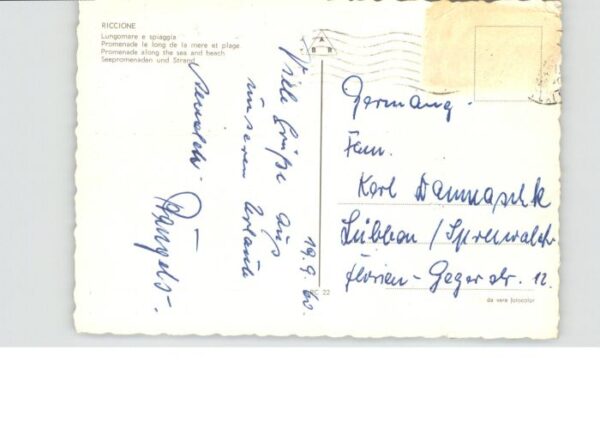 RICCIONE
Lungomare e spiaggia
Promenade le long de la mere et plage
Promenade along the sea and beach
Seepromenaden und Strand
19.9.60.
Viele Grüße aus
unseren Urlaub
Germany.
Fam.
Karl Dammaschk
Lübben / Spreewald
Florian-Geyer str. 12.
RC 22
da vere fotocolor